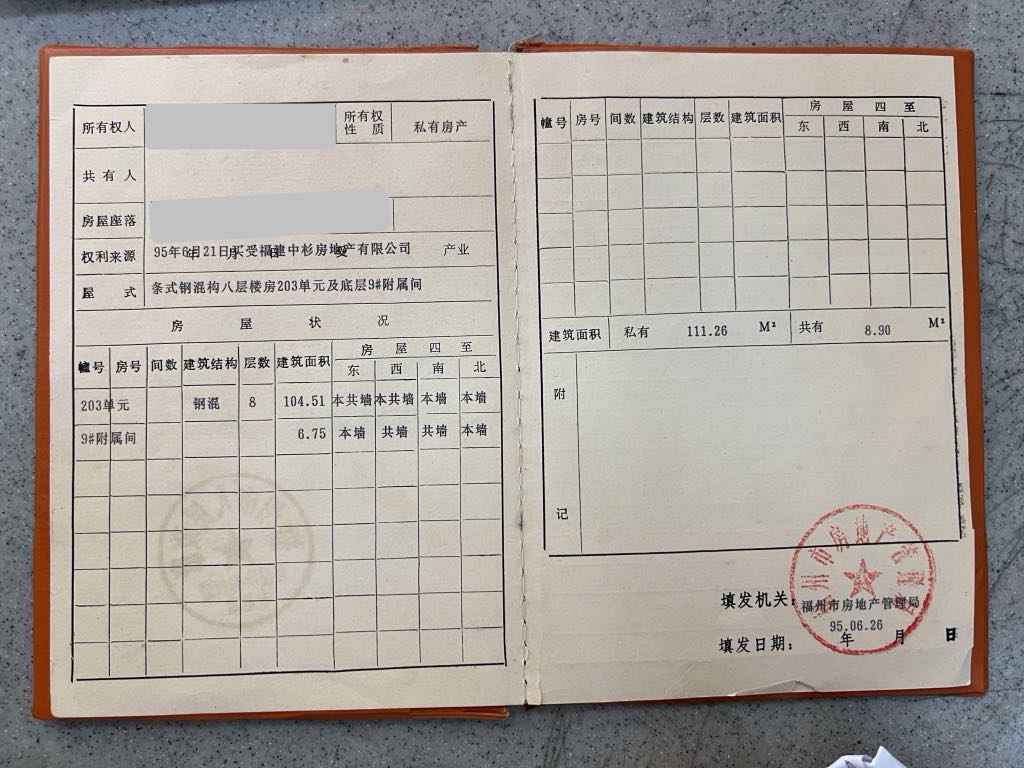 所有权人 所有权性质 私有房产
共有人
房屋座落
权利来源 95年6月21日买受福建中杉房地产有限公司 产业
屋式 条式钢混构八层楼房203单元及底层9#附属间
房屋状况
幢号 房号 间数 建筑结构 层数 建筑面积 房屋四至
东 西 南 北
203单元 钢混 8 104.51 本共墙 本共墙 本墙 本墙
9#附属间 6.75 本墙 共墙 共墙 本墙
幢号 房号 间数 建筑结构 层数 建筑面积 房屋四至
东 西 南 北
建筑面积 私有 111.26 M² 共有 8.90 M²
附记
填发机关：福州市房地产管理局
填发日期：95.06.26 年 月 日